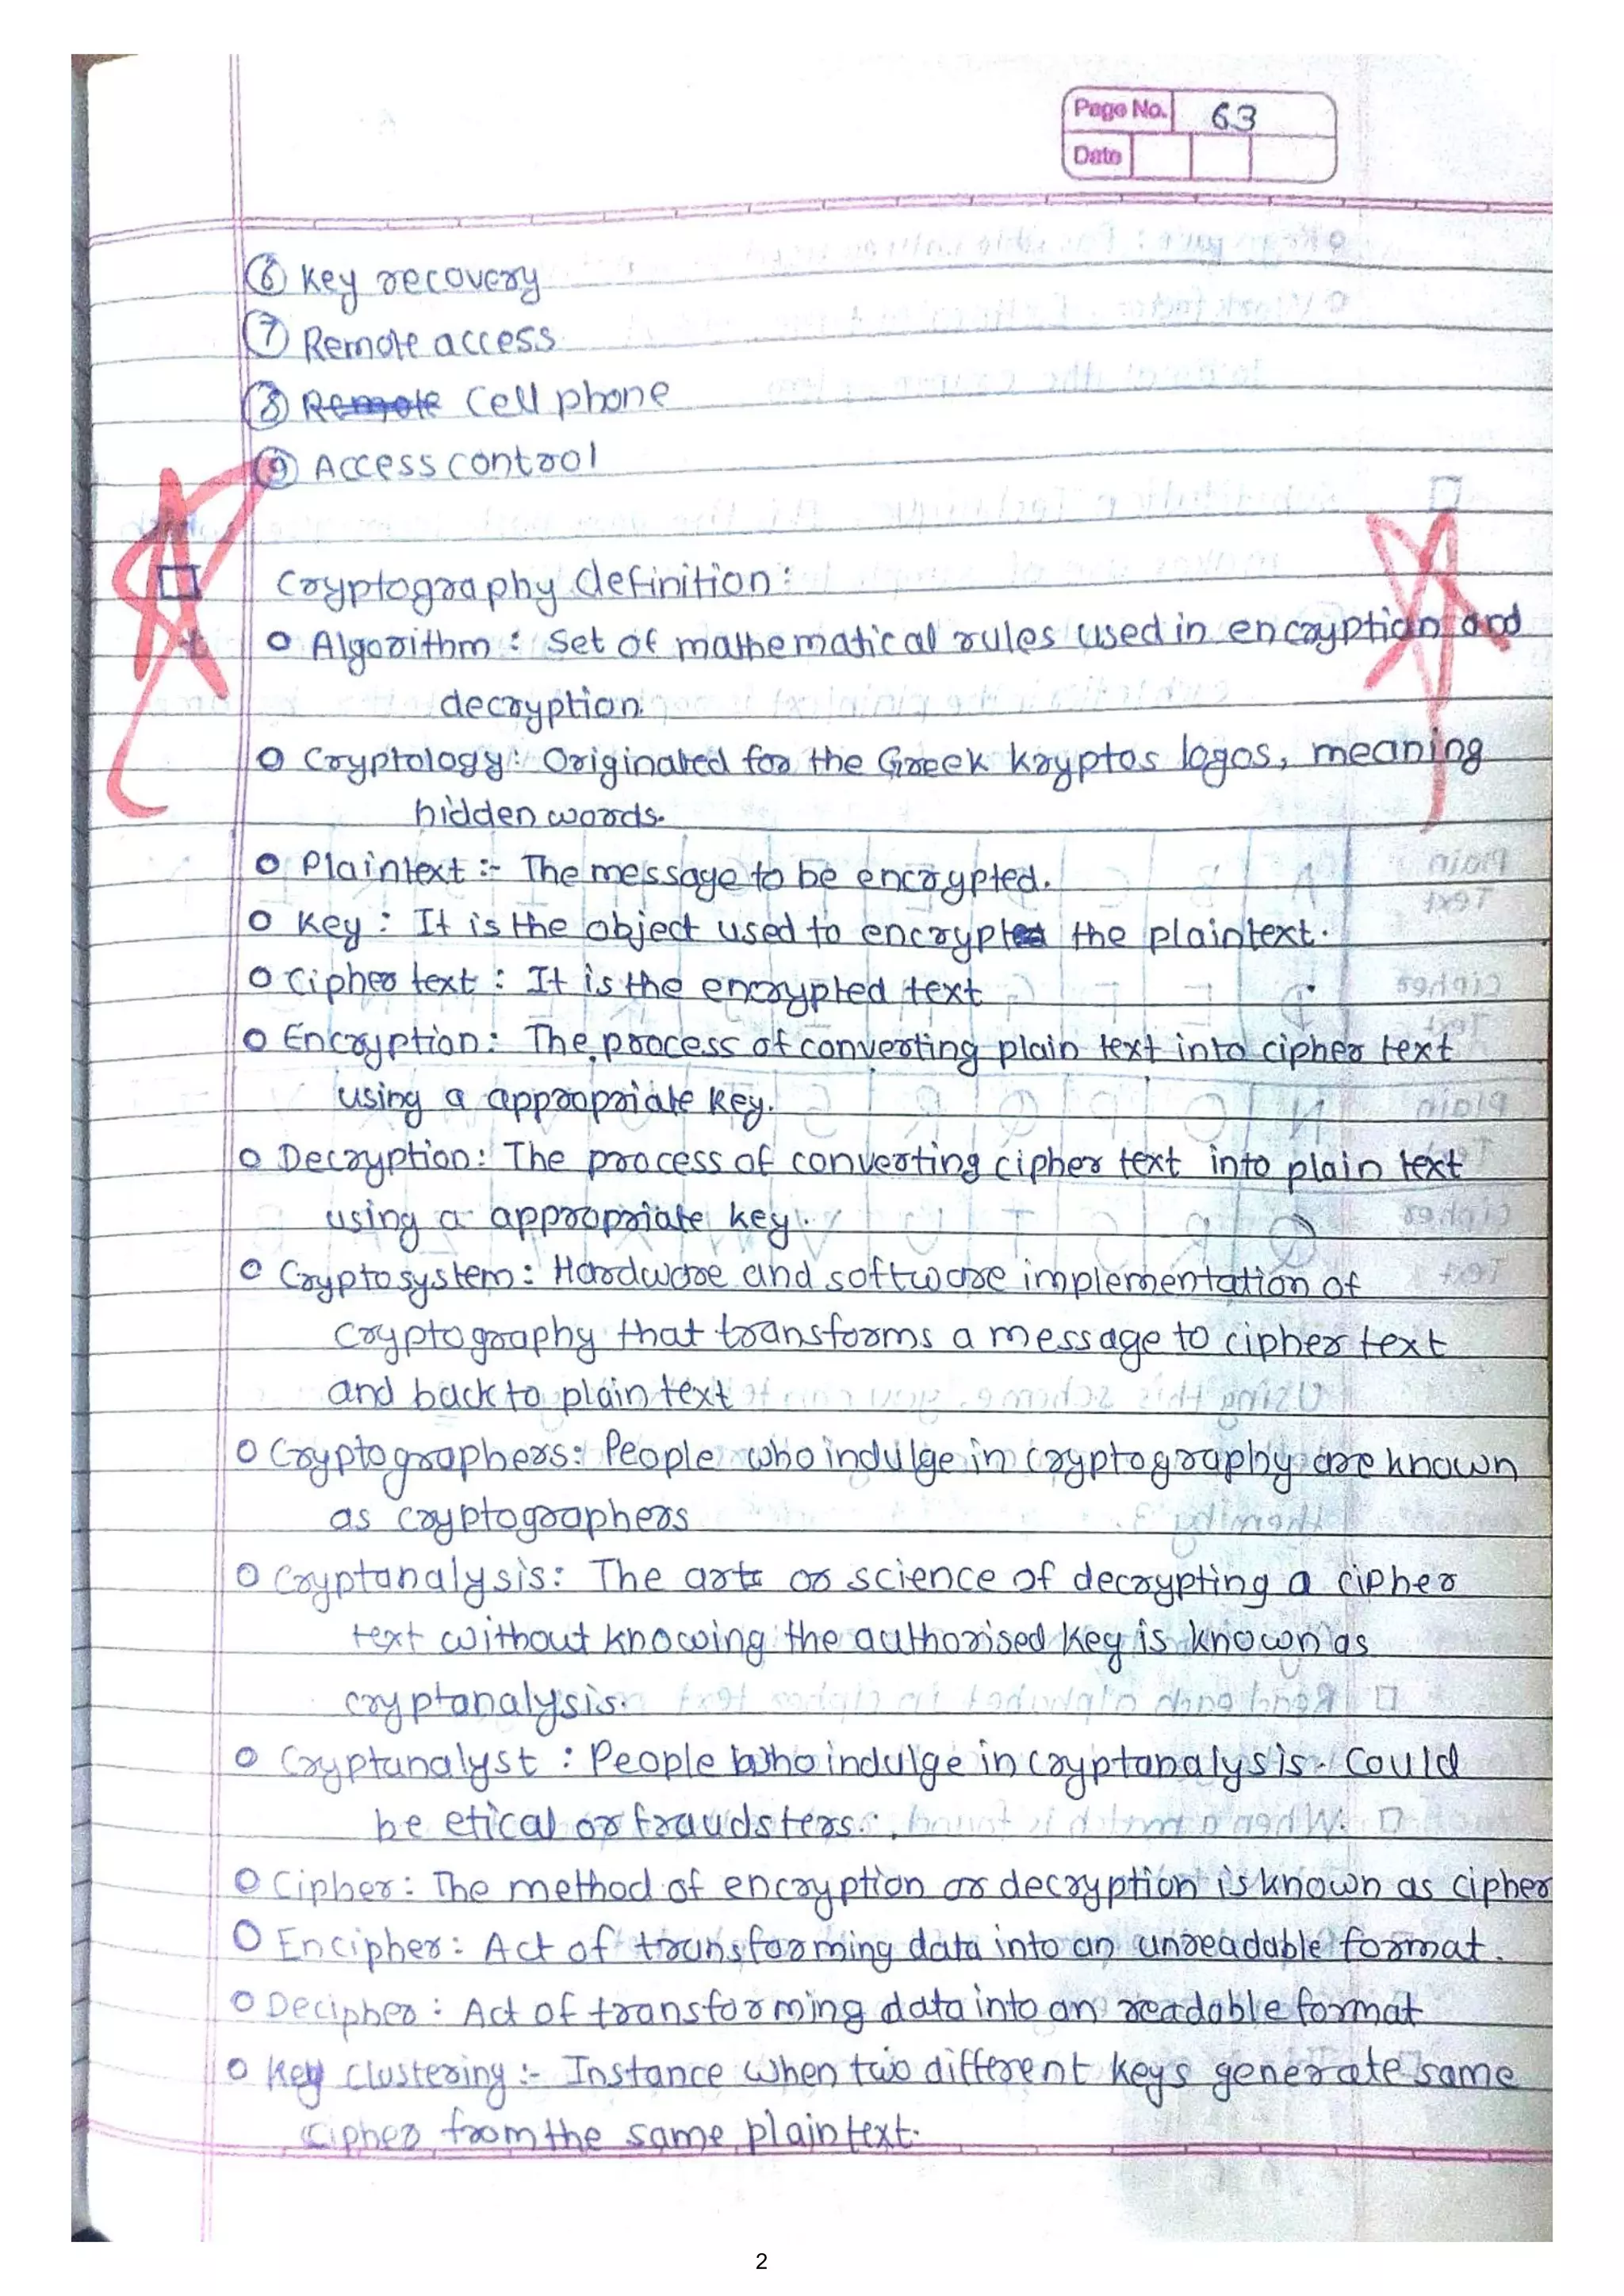 Page No. 63
Date
⑥ Key recovery
⑦ Remote access
⑧ Remote Cell phone
⑨ Access control
Cryptography definition:
o Algorithm : Set of mathematical rules used in encryption and
decryption.
o Cryptology: Originated for the Greek kryptos logos, meaning
hidden words.
o Plaintext :- The message to be encrypted.
o Key : It is the object used to encrypt the plaintext.
o Cipher text : It is the encrypted text
o Encryption: The process of converting plain text into cipher text
using a appropriate key.
o Decryption: The process of converting cipher text into plain text
using a appropriate key.
o Cryptosystem: Hardware and software implementation of
cryptography that transforms a message to cipher text
and back to plain text
o Cryptographers: People who indulge in cryptography are known
as cryptographers
o Cryptanalysis: The art or science of decrypting a cipher
text without knowing the authorised key is known as
cryptanalysis.
o Cryptanalyst : People who indulge in cryptanalysis. Could
be etical or fraudsters.
o Cipher: The method of encryption or decryption is known as cipher
o Encipher: Act of transforming data into an unreadable format.
o Decipher : Act of transforming data into an readable format
o Key Clustering :- Instance when two different keys generate same
cipher from the same plain text.
2